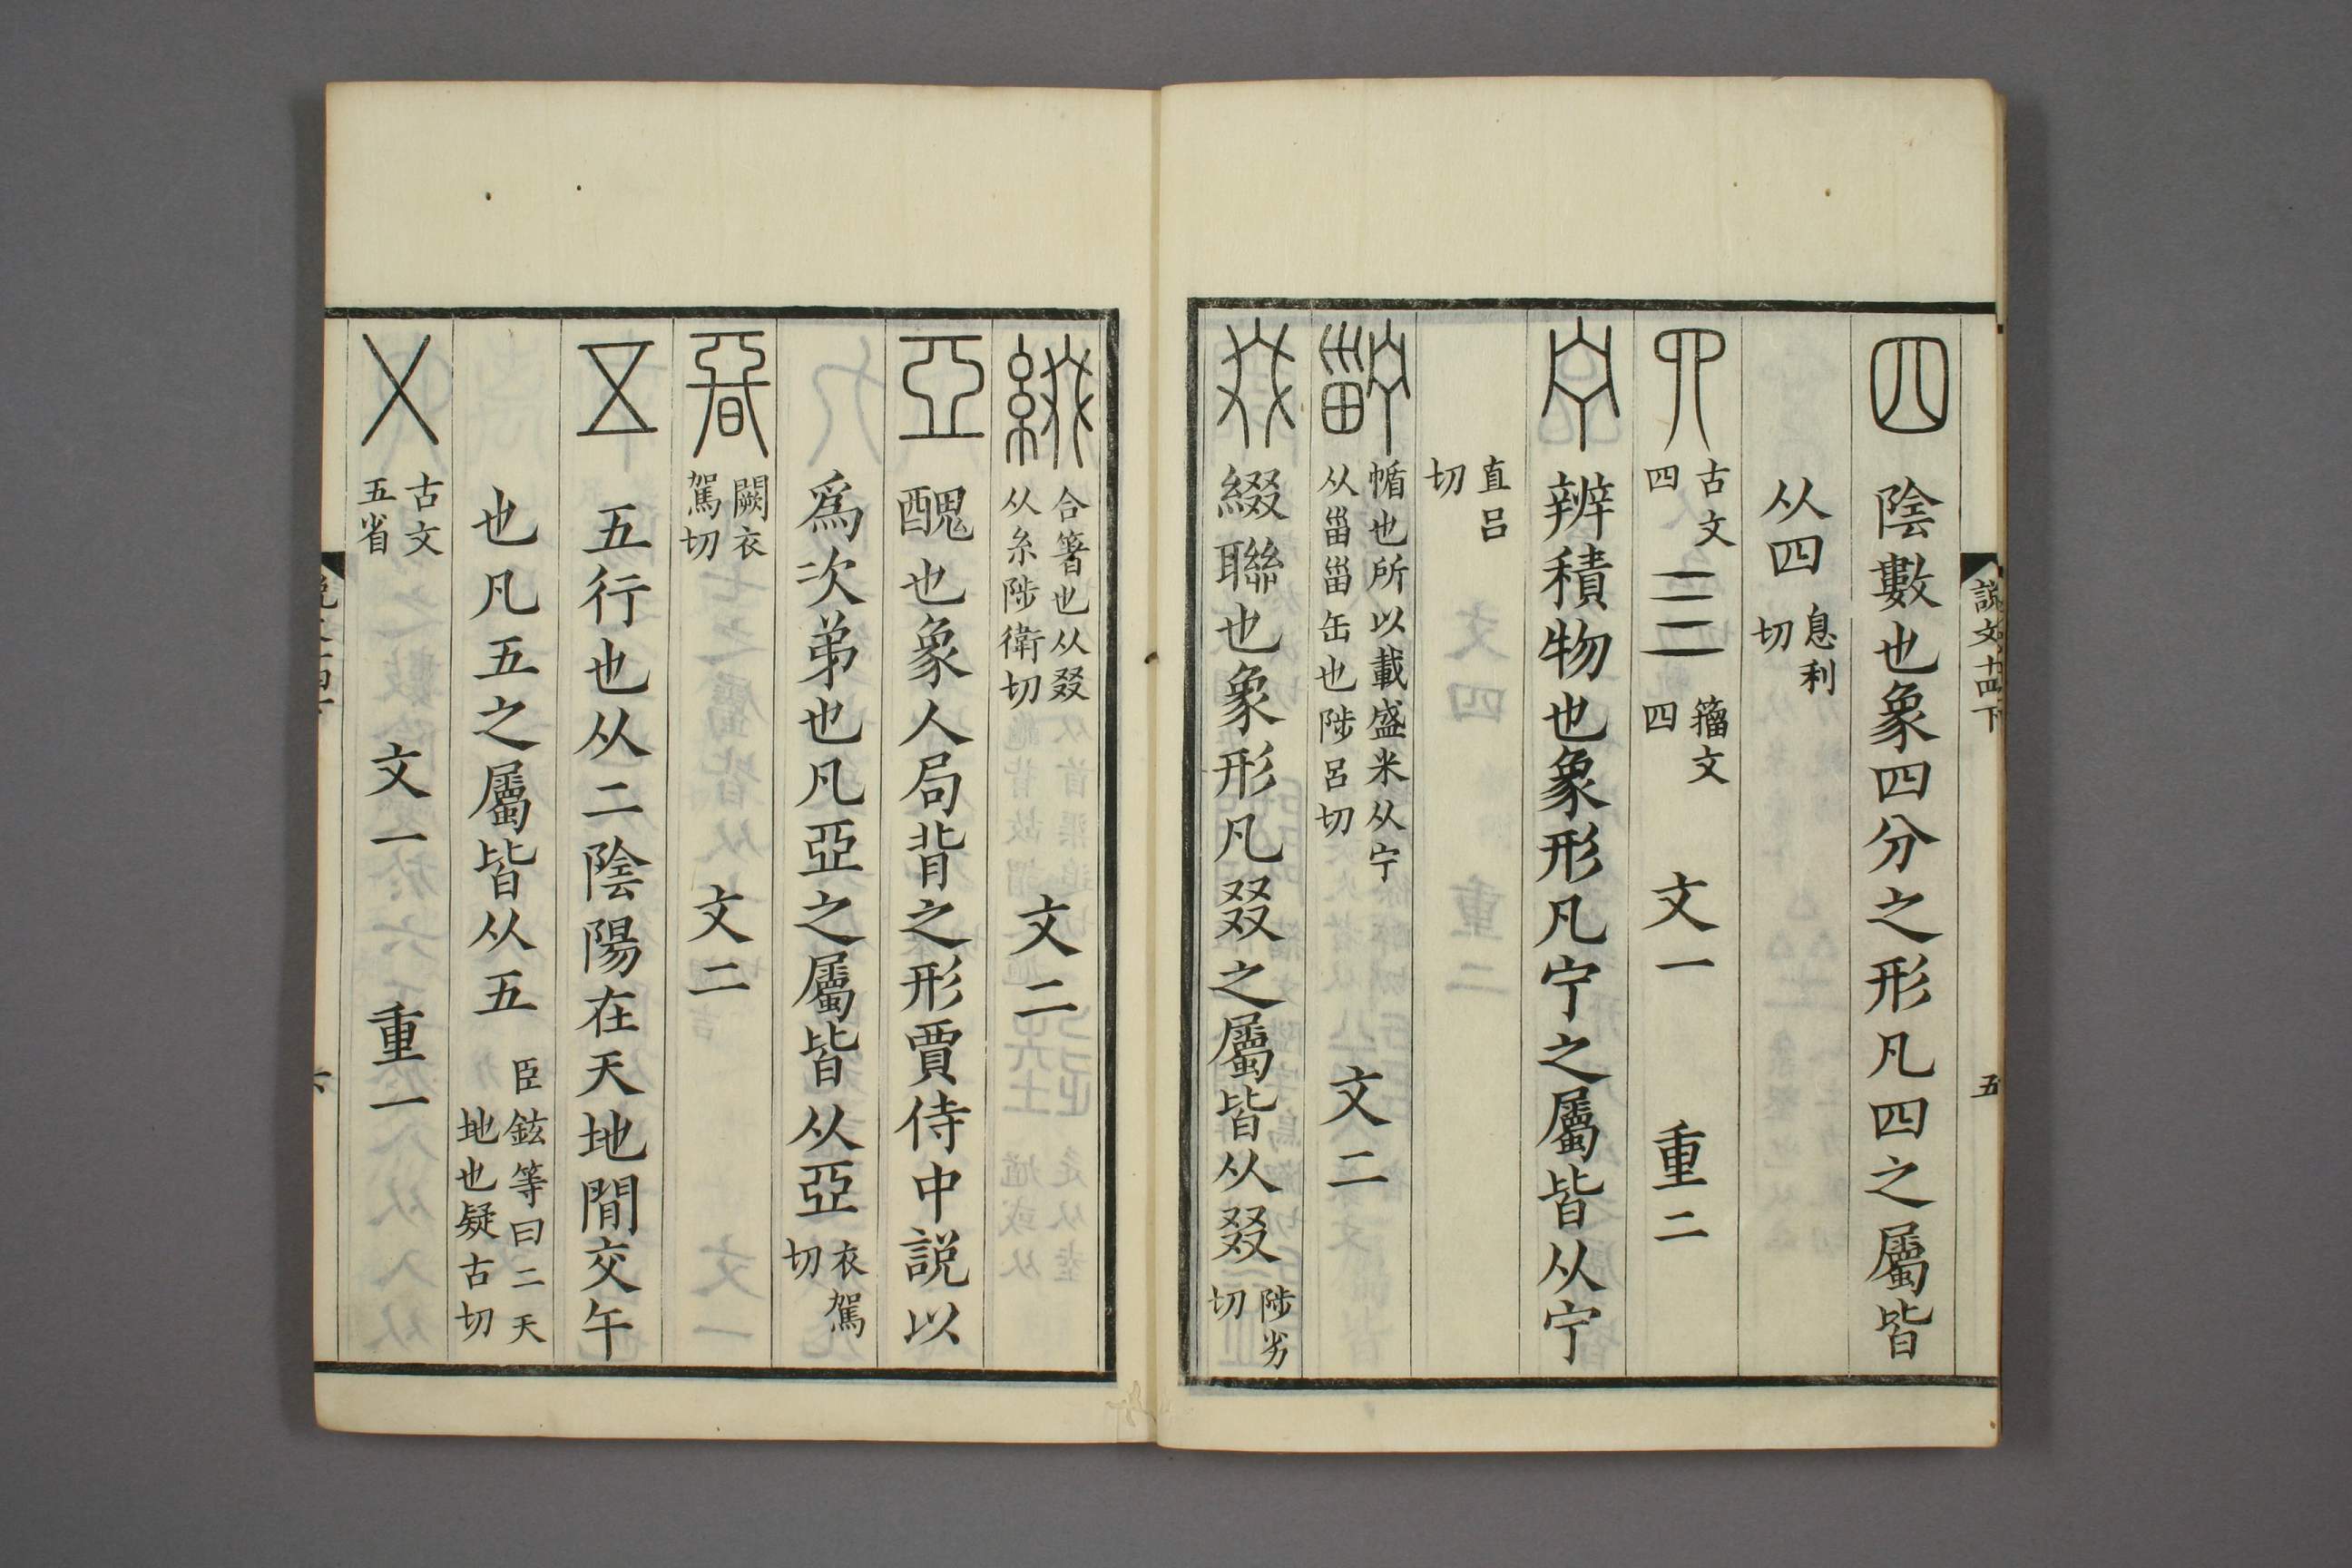 說文十四下
五
四 陰數也象四分之形凡四之屬皆
从四 息利切
古文四 亖 籀文四 文一 重二
宁 辨積物也象形凡宁之屬皆从宁
直呂切
㡒也所以載盛米从宁从甾甾缶也陟呂切 文二
叕 綴聯也象形凡叕之屬皆从叕 陟劣切
綴 合箸也从叕从糸陟衛切 文二
亞 醜也象人局背之形賈侍中說以
爲次弟也凡亞之屬皆从亞 衣駕切
闕衣駕切 文二
五 五行也从二陰陽在天地閒交午
也凡五之屬皆从五 臣鉉等曰二天地也疑古切
㐅 古文五省 文一 重一